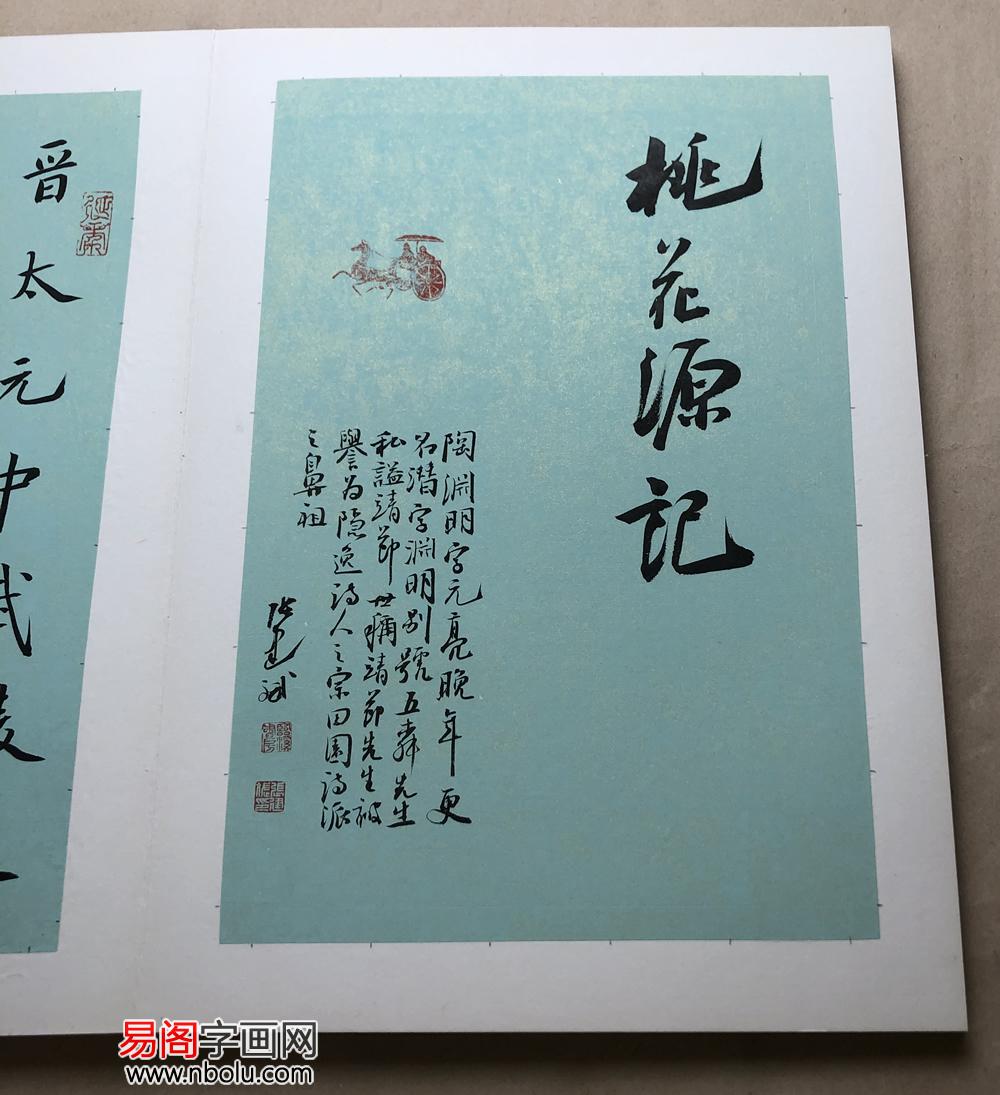 桃花源記
陶渊明字元亮晚年更
名潜字渊明别號五柳先生
私謚靖節世稱靖節先生被
譽为隐逸诗人之宗田園诗派
之鼻祖
张建斌
晋太元中武陵
易阁字画网
www.nbolu.com